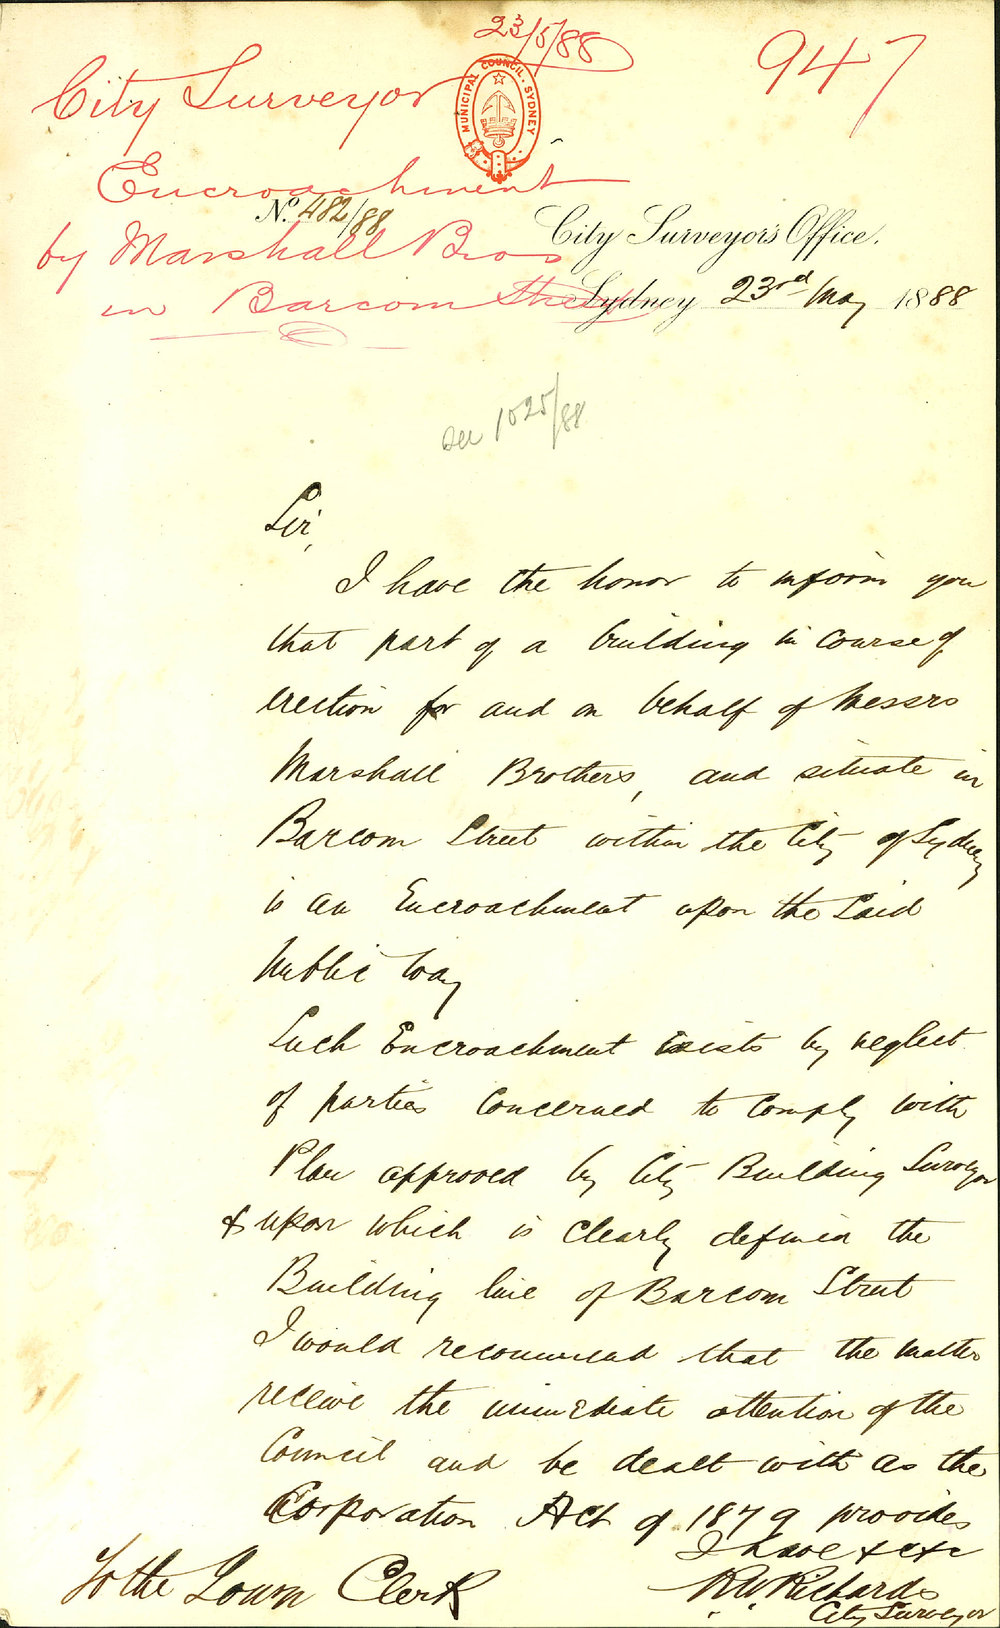 23/5/88
947
City Surveyor
MUNICIPAL COUNCIL · SYDNEY
Encroachment
No. 482/88
by Marshall Bros
City Surveyor's Office.
in Barcom Street
Sydney 23rd May 1888
see 1025/88
Sir,
I have the honor to inform you
that part of a building in course of
erection for and on behalf of Messrs
Marshall Brothers, and situate in
Barcom Street within the City of Sydney
is an Encroachment upon the said
Public Way
Such Encroachment exists by neglect
of parties concerned to comply with
Plan approved by City Building Surveyor
& upon which is clearly defined the
Building line of Barcom Street
I would recommend that the matter
receive the immediate attention of the
Council and be dealt with as the
Corporation Act of 1879 provides
I have &c &c
R.W. Richards
City Surveyor
To the Town Clerk